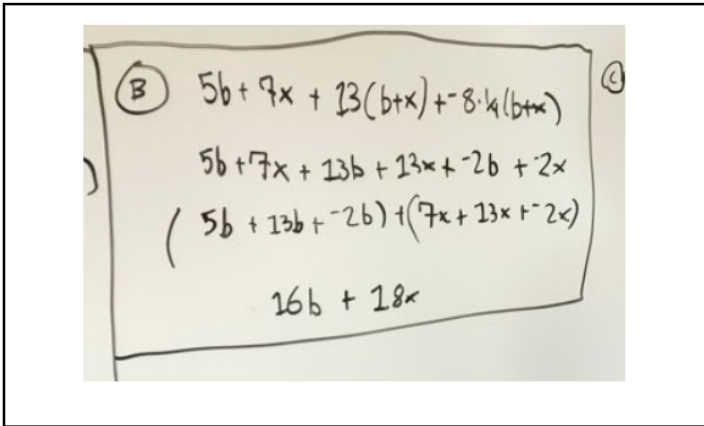 B 5b + 7x + 13(b+x) + ⁻8·¼(b+x)
C
5b + 7x + 13b + 13x + ⁻2b + ⁻2x
)
(5b + 13b + ⁻2b) + (7x + 13x + ⁻2x)
16b + 18x